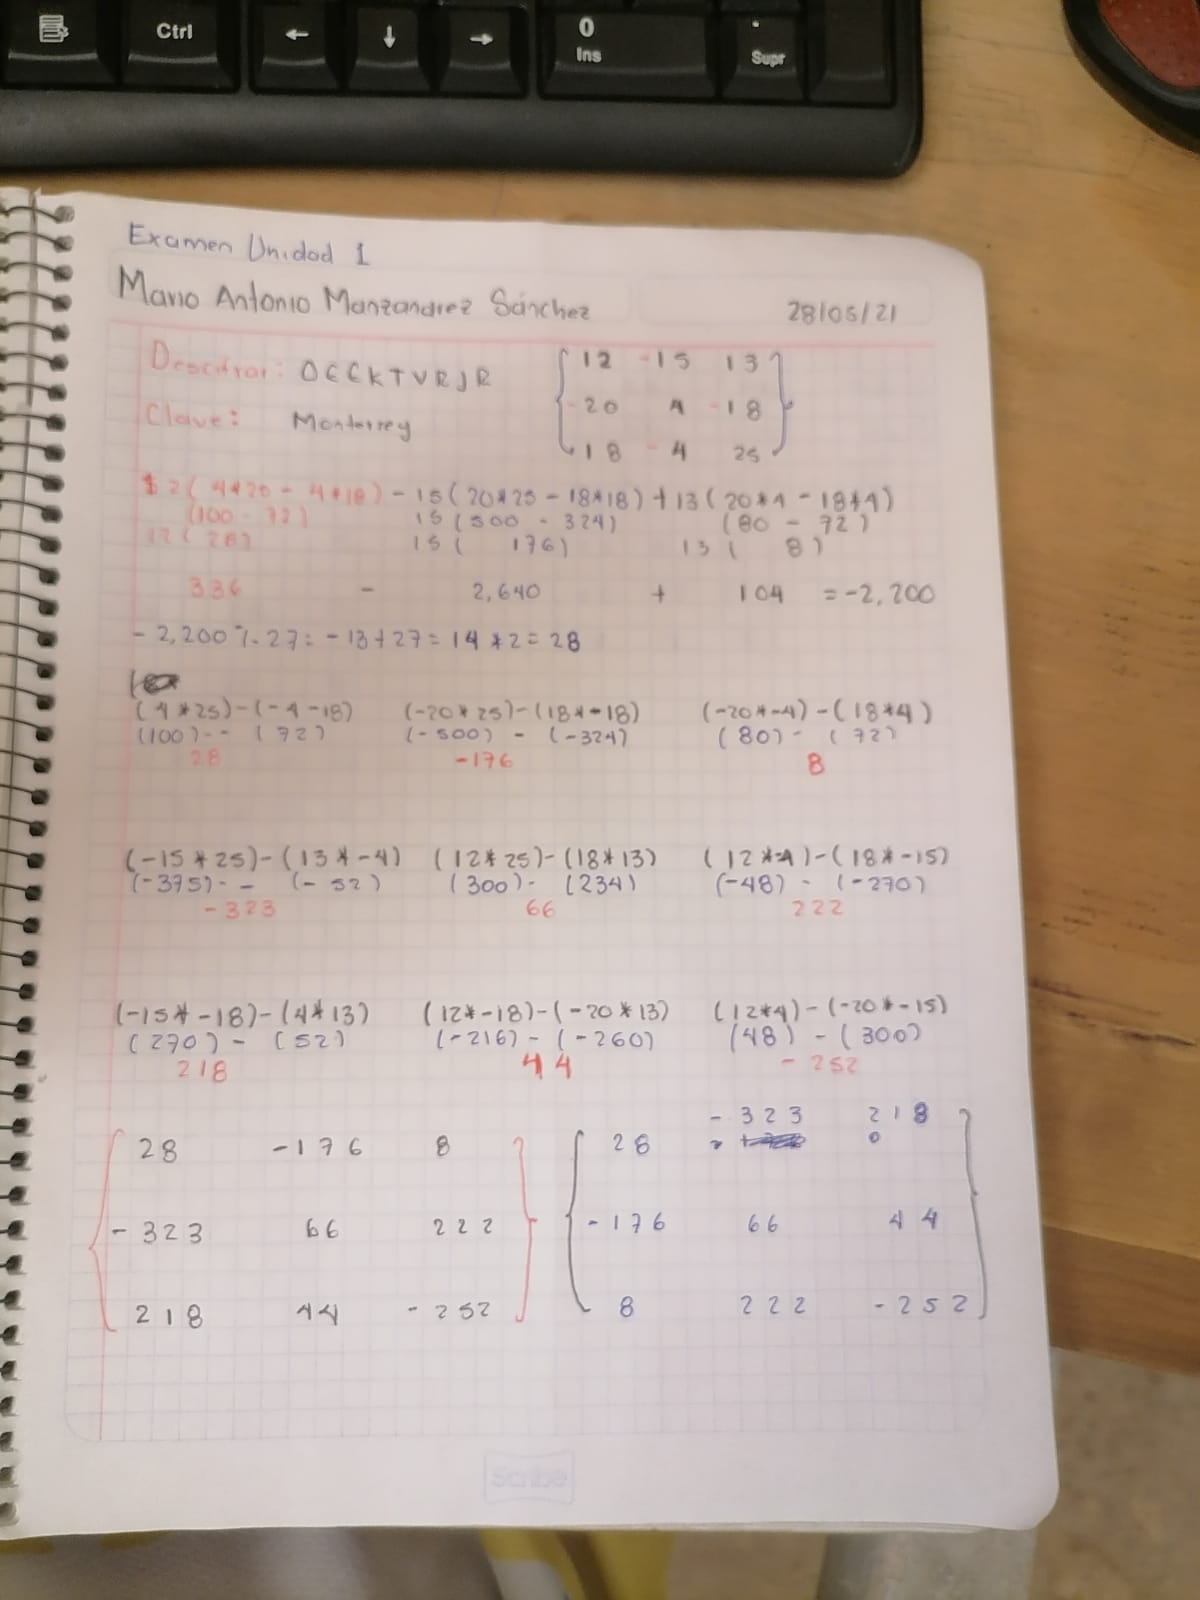 Ctrl ← ↓ → 0 Ins . Supr
Examen Unidad 1
Mario Antonio Manzandrez Sánchez 28/05/21
Descifrar: OCCKTVRJR
Clave: Monterrey
12 -15 13
-20 4 -18
18 -4 25
12(4*25 - 4*18) - 15(20*25 - 18*18) + 13(20*4 - 18*4)
(100 - 72) 15(500 - 324) (80 - 72)
12(28) 15( 176) 13( 8)
336 - 2,640 + 104 = -2,200
- 2,200 % 27 = - 13 + 27 = 14 * 2 = 28
(4*25)-(-4-18) (-20*25)-(18*-18) (-20*-4)-(18*4)
(100)-- (72) (-500) - (-324) (80)- (72)
28 -176 8
(-15*25)-(13*-4) (12*25)-(18*13) (12*-4)-(18*-15)
(-375)-- (-52) (300)- (234) (-48) - (-270)
-323 66 222
(-15*-18)-(4*13) (12*-18)-(-20*13) (12*4)-(-20*-15)
(270)- (52) (-216)- (-260) (48) - (300)
218 44 - 252
28 -176 8
-323 66 222
218 44 -252
28 -323 218
-176 66 44
8 222 -252
Scribe